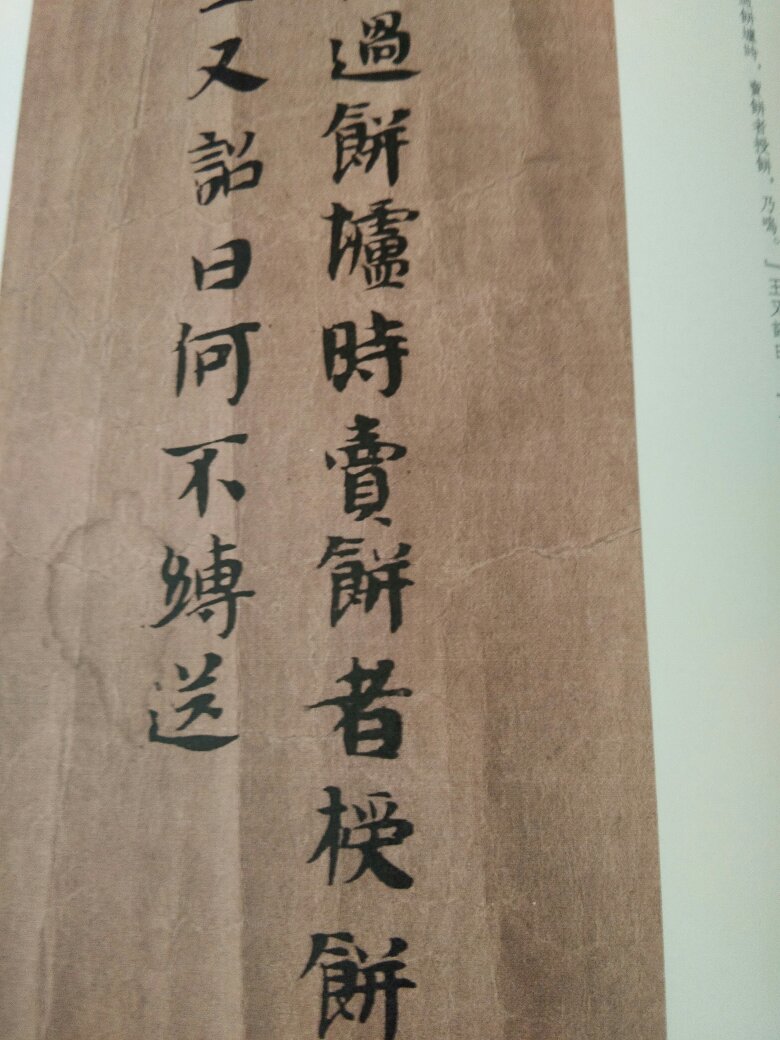 餅壚時，賣餅者授餅，乃鳴。』王又詔曰
過餅壚時賣餅者授餅
又詔曰何不縛送